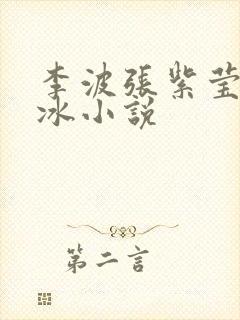 李波張紫莹
冰小說
第二言